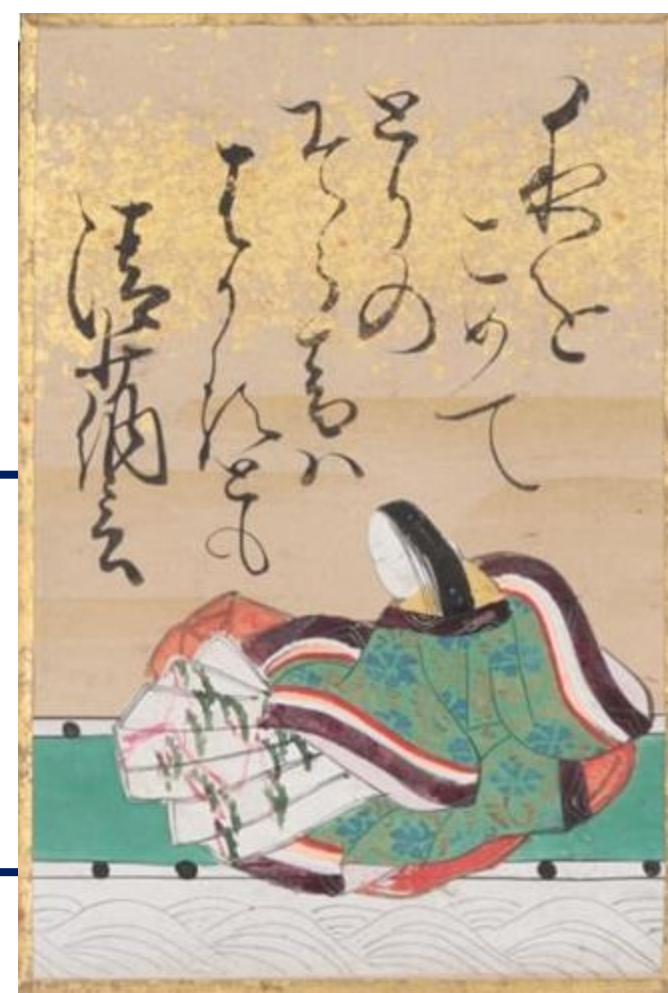 夜を
こめて
とりの
そら音ハ
はかるとも
清少納言